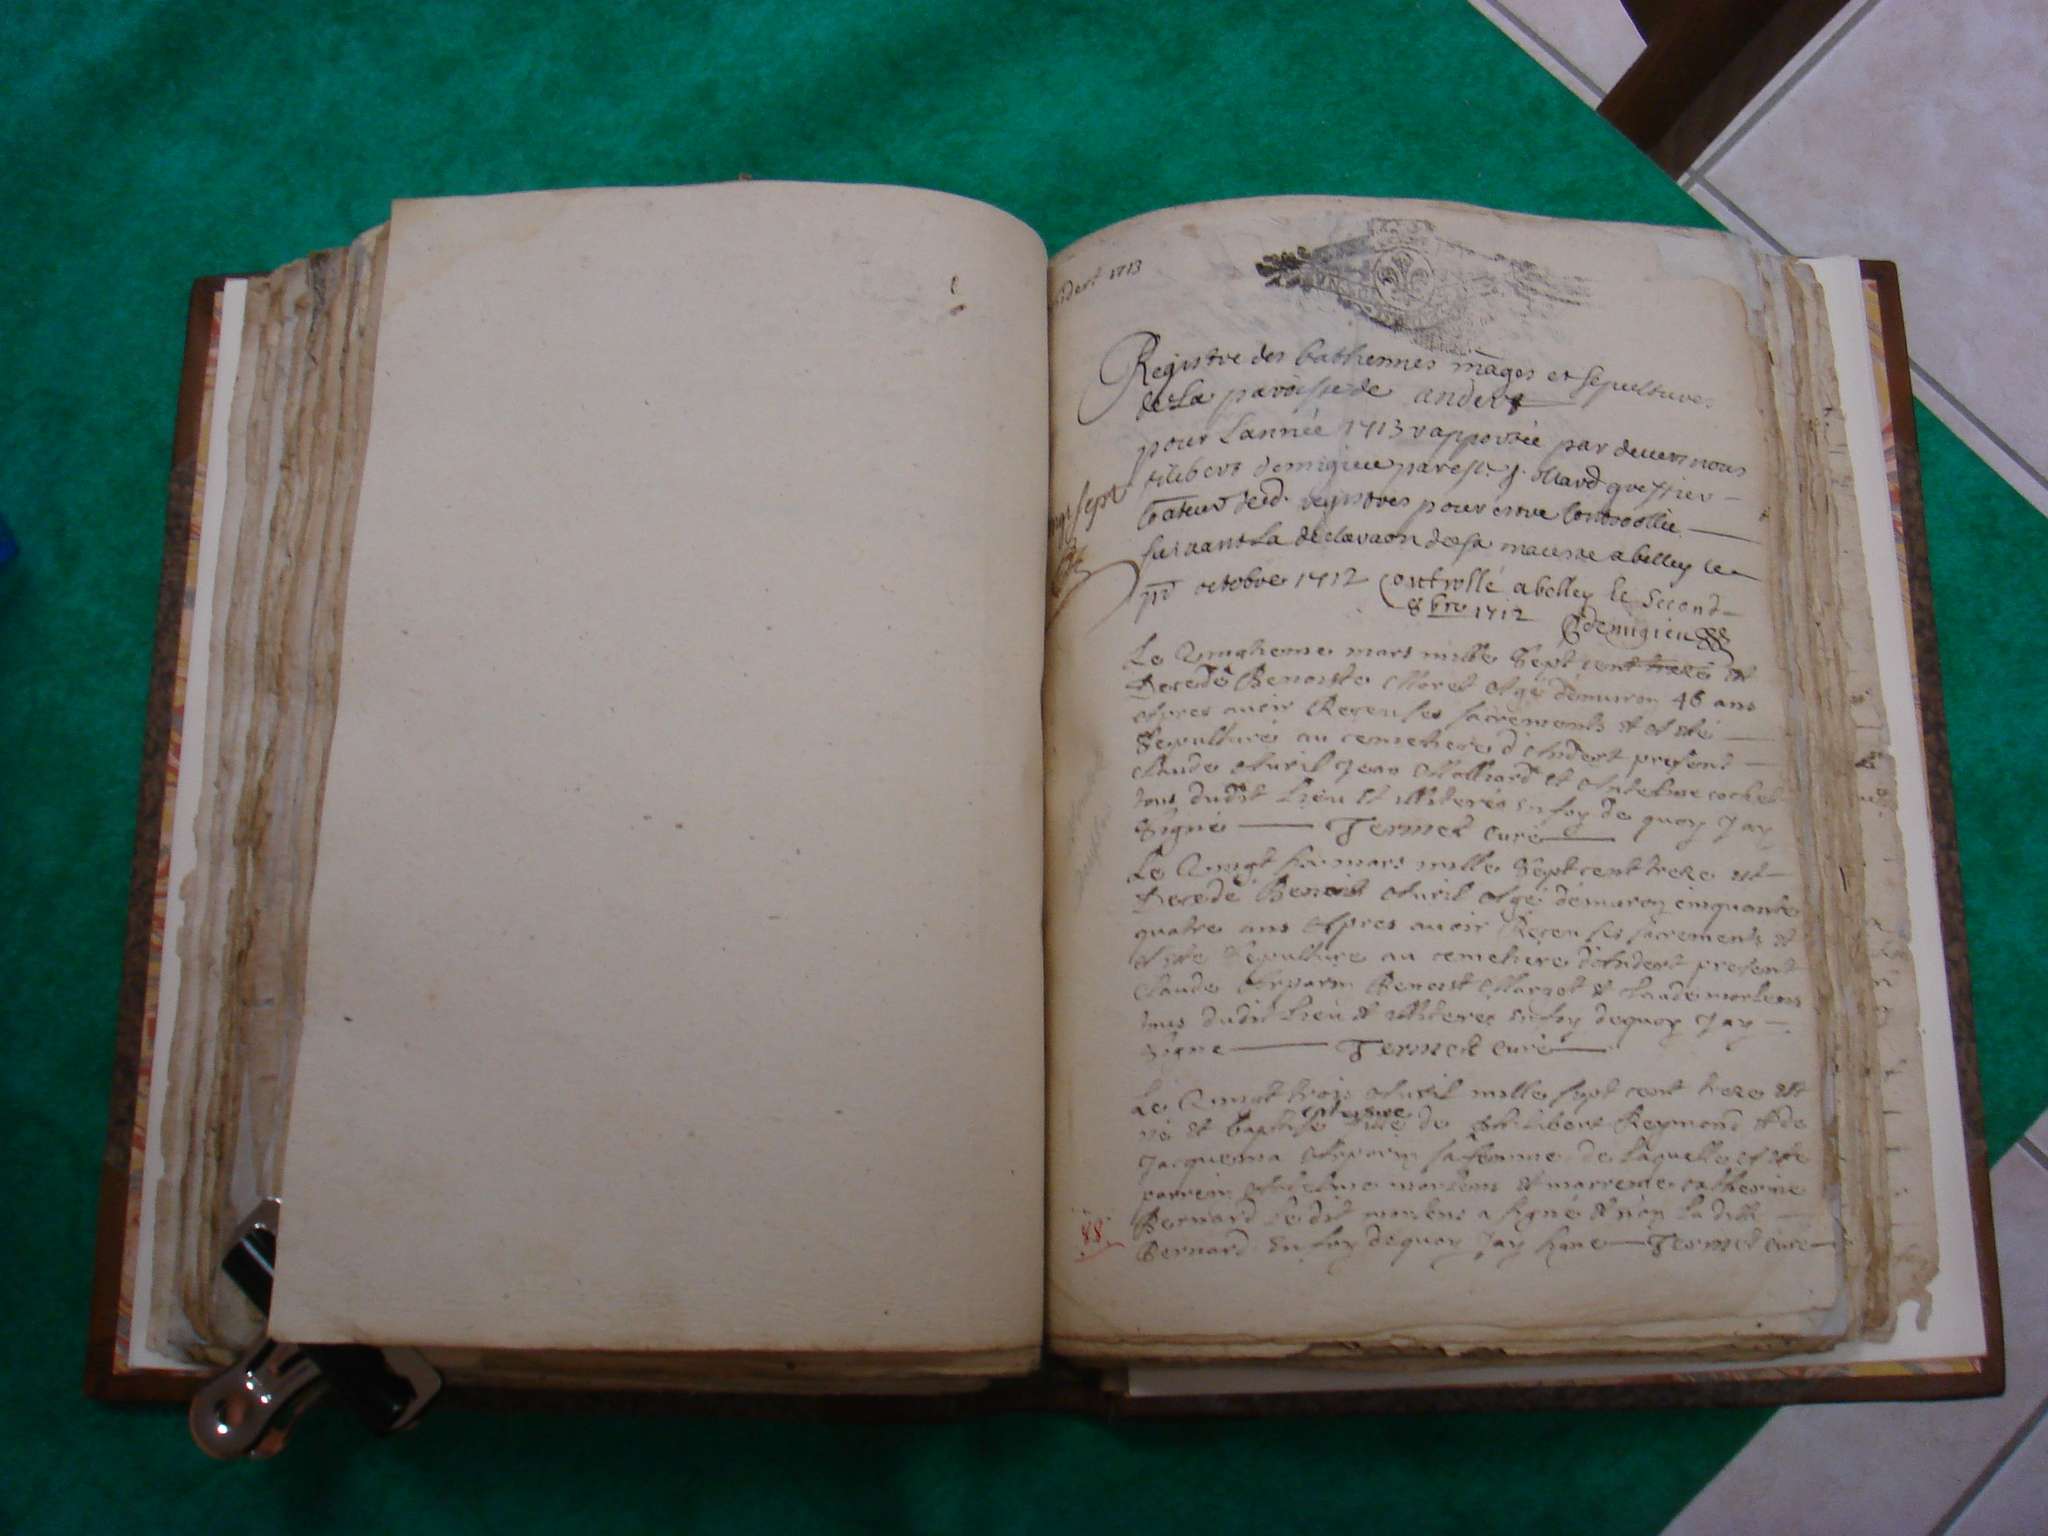 andert 1713
Registre des bathemes mãges et sepultures
de La paroisse de andert
pour Lannée 1713 rapportée par devers nous
filibert demigieu par greffier
des registres pour estre controollée
suivant La declaraon de sa maieste a belley le
pr octobre 1712 Controllé a belley le second
8bre 1712 demigieu
vingt sept
Le mars mille sept cent treze est
Decedé Benoiste Moret Agé démuron 46 ans
Apres avoir Receu ses sacrements et a esté
Sepulturé au cemetiere d'Andert present
Claude Avril Jean Molliard et Antelme cochet
tous dudit Lieu et illiterés en foy de quoy Jay
Signé Termet curé
Le Vingt mars mille Sept cent treze est
Decedé Benoit Avril Agé démuron cinquante
quatre ans Apres avoir Receu ses sacrements et
A esté Sepulturé au cemetiere dAndert present
Claude Benoist Margot et Claude morlens
tous dudit Lieu et illiteres en foy dequoy Jay
Signé Termet curé
Le Vingt trois Avril mille sept cent treze est
né et baptisé Antelme de Philibert Reymond et de
Jacquema sa femme de Laquelle a esté
parrein Antelme morlens et marreine catherine
Bernard Ledit morlens a signé et non La ditte
Bernard En foy dequoy Jay signé Termet curé
88